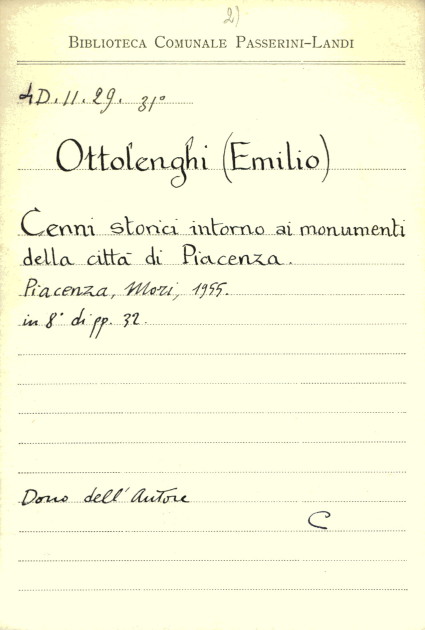 2)
BIBLIOTECA COMUNALE PASSERINI-LANDI
4D.11.29. 31°
Ottolenghi (Emilio)
Cenni storici intorno ai monumenti
della città di Piacenza.
Piacenza, Mori, 1955.
in 8° di pp. 32.
Dono dell'Autore
C